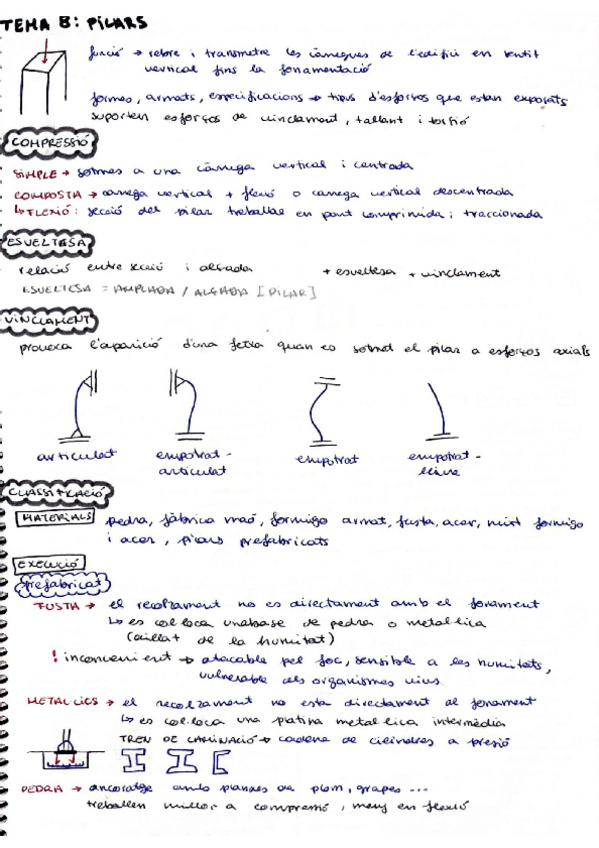 TEMA 8: PILARS
funció → rebre i transmetre les càrregues de l'edifici en sentit
vertical fins la fonamentació
formes, armats, especificacions → tipus d'esforços que estan exposats
suporten esforços de vinclament, tallant i torsió
COMPRESSIÓ
SIMPLE → sotmes a una càrrega vertical i centrada
COMPOSTA → carrega vertical + flexió o carrega vertical descentrada
↳ FLEXIÓ: secció del pilar treballae en part comprimida i traccionada
ESVELTESA
relació entre secció i alçada + esveltesa + vinclament
ESVELTESA = AMPLADA / ALÇADA [PILAR]
VINCLAMENT
provoca l'aparició d'una fetxa quan es sotmet el pilar a esforços axials
articulat empotrat - articulat empotrat empotrat - lliure
CLASSIFICACIÓ
MATERIALS pedra, fàbrica maó, formigó armat, fusta, acer, mixt formigo
i acer, pilars prefabricats
EXECUCIÓ
prefabricat
FUSTA → el recolzament no es directament amb el fonament
↳ es col·loca una base de pedra o metal·lica
(aillat de la humitat)
! inconvenient → atacable pel foc, sensible a les humitats,
vulnerable als organismes vius.
METAL·LICS → el recolzament no esta directament al fonament
↳ es col·loca una platina metal·lica intermèdia
TREN DE LAMINACIÓ → cadena de cilindres a pressió
PEDRA → ancoratge amb planxes de plom, grapes ...
treballen millor a compressió, menys en flexió